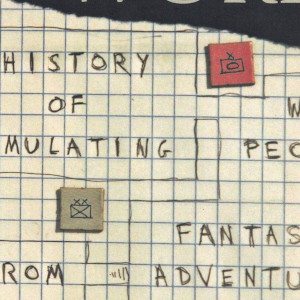 HISTORY
OF W
MULATING PEO
FANTAS
ROM ADVENTU